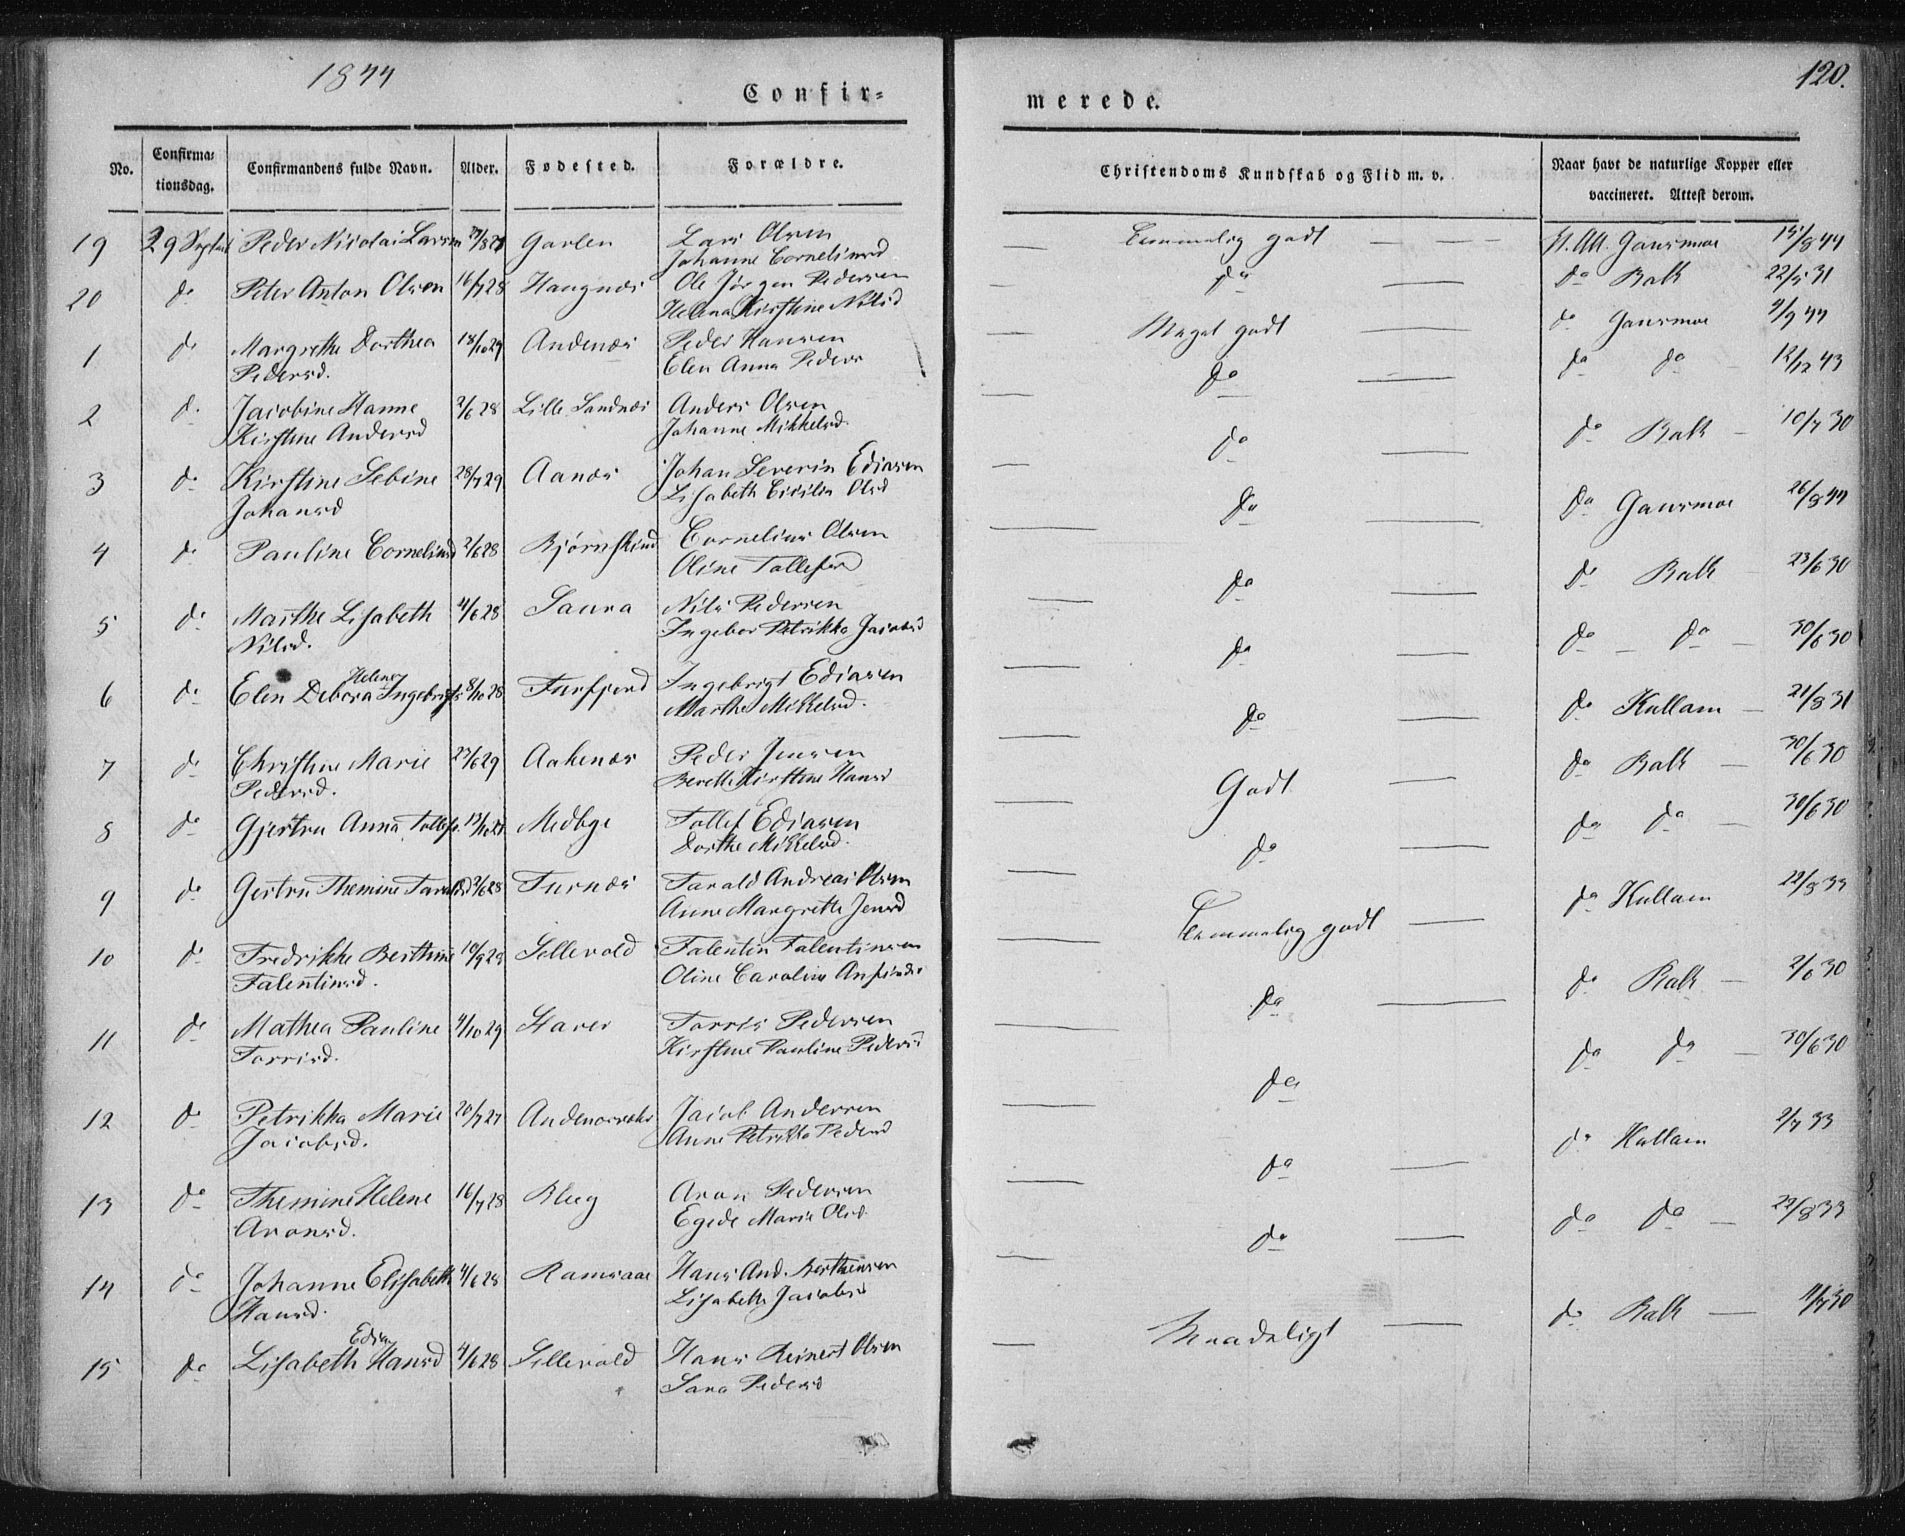 1844
120.
Confir-
merede.
No.
Confirma-
tionsdag.
Confirmandens fulde Navn.
Alder.
Fødested.
Forældre.
Christendoms Kundskab og Flid m. v.
Naar havt de naturlige Kopper eller
vaccineret. Attest derom.
19 29 Septbr Peder Nicolai Larsen Garlen Lars Olsen Temmelig godt Gausmoe 15/8 44
Johanne Corneliusd
20 do Peter Anton Olsen 16/7 28 Haugnæs Ole Jørgen Pedersen do do Balk 22/5 31
Helena Kirstine Nilsd
1 do Margrethe Dorthea 18/10 29 Andenæs Peder Hansen Meget godt do Gausmoe 4/9 44
Pedersd. Elen Anna Peders
2 do Jacobine Hanne 2/6 28 Lille Sandnæs Anders Olsen do do do 12/12 43
Kirstine Andersd Johanne Mikkelsd.
3 do Kirstine Sebine 28/7 29 Aanæs Johan Severin Ediasen do do Balk 10/7 30
Johansd Lisabeth Cicilia Olsd
4 do Pauline Corneliusd 2/6 28 Bjørnskind Cornelius Olsen do do Gausmoe 26/8 44
Oline Tollefsd
5 do Marthe Lisabeth 4/6 28 Saura Nils Pedersen do do Balk 23/6 30
Nilsd. Ingebor Petrikka Jacobsd
Helene
6 do Elen Debora Ingebrigts 8/10 28 Finfjord Ingebrigt Ediasen do do do 30/6 30
Marthe Mikkelsd.
7 do Christine Marie 23/6 29 Aakenæs Peder Jensen do do Kullam 21/8 31
Pedersd. Bereth Kirstine Hansd
8 do Gjertru Anna Tollefs. Medbye Tollef Ediasen Godt do Balk 30/6 30
Dorthe Mikkelsd.
9 do Gertru Themine Taraldsd 2/6 28 Turnæs Tarald Andreas Olsen do do do 30/6 30
Anne Margrethe Jensd
10 do Fredrikke Berthine 10/9 28 Sellevold Falentin Falentinsen Temmelig godt do Kullam 22/8 33
Falentinsd. Oline Caroline
11 do Mathea Pauline 4/10 29 Haver Torris Pedersen do do Balk 2/6 30
Torrisd. Kirstine Pauline Pedersd
12 do Petrikka Marie 20/7 27 Jacob Andersen do do do 30/6 30
Jacobsd. Anne Petrikka Pedersd
13 do Themine Helene 16/7 28 Bleeg Aron Pedersen do do Kullam 2/7 33
Aronsd. Egede Marie Olsd.
14 do Johanne Elisabeth 4/6 28 Ramsaae Hans And. Berthensen do do do 22/8 33
Hansd. Lisabeth Jacobsd
Edia
15 do Lisabeth Hansd 4/6 28 Sellevold Hans Reinert Olsen Maadeligt do Balk 11/7 30
Sara Pedersd